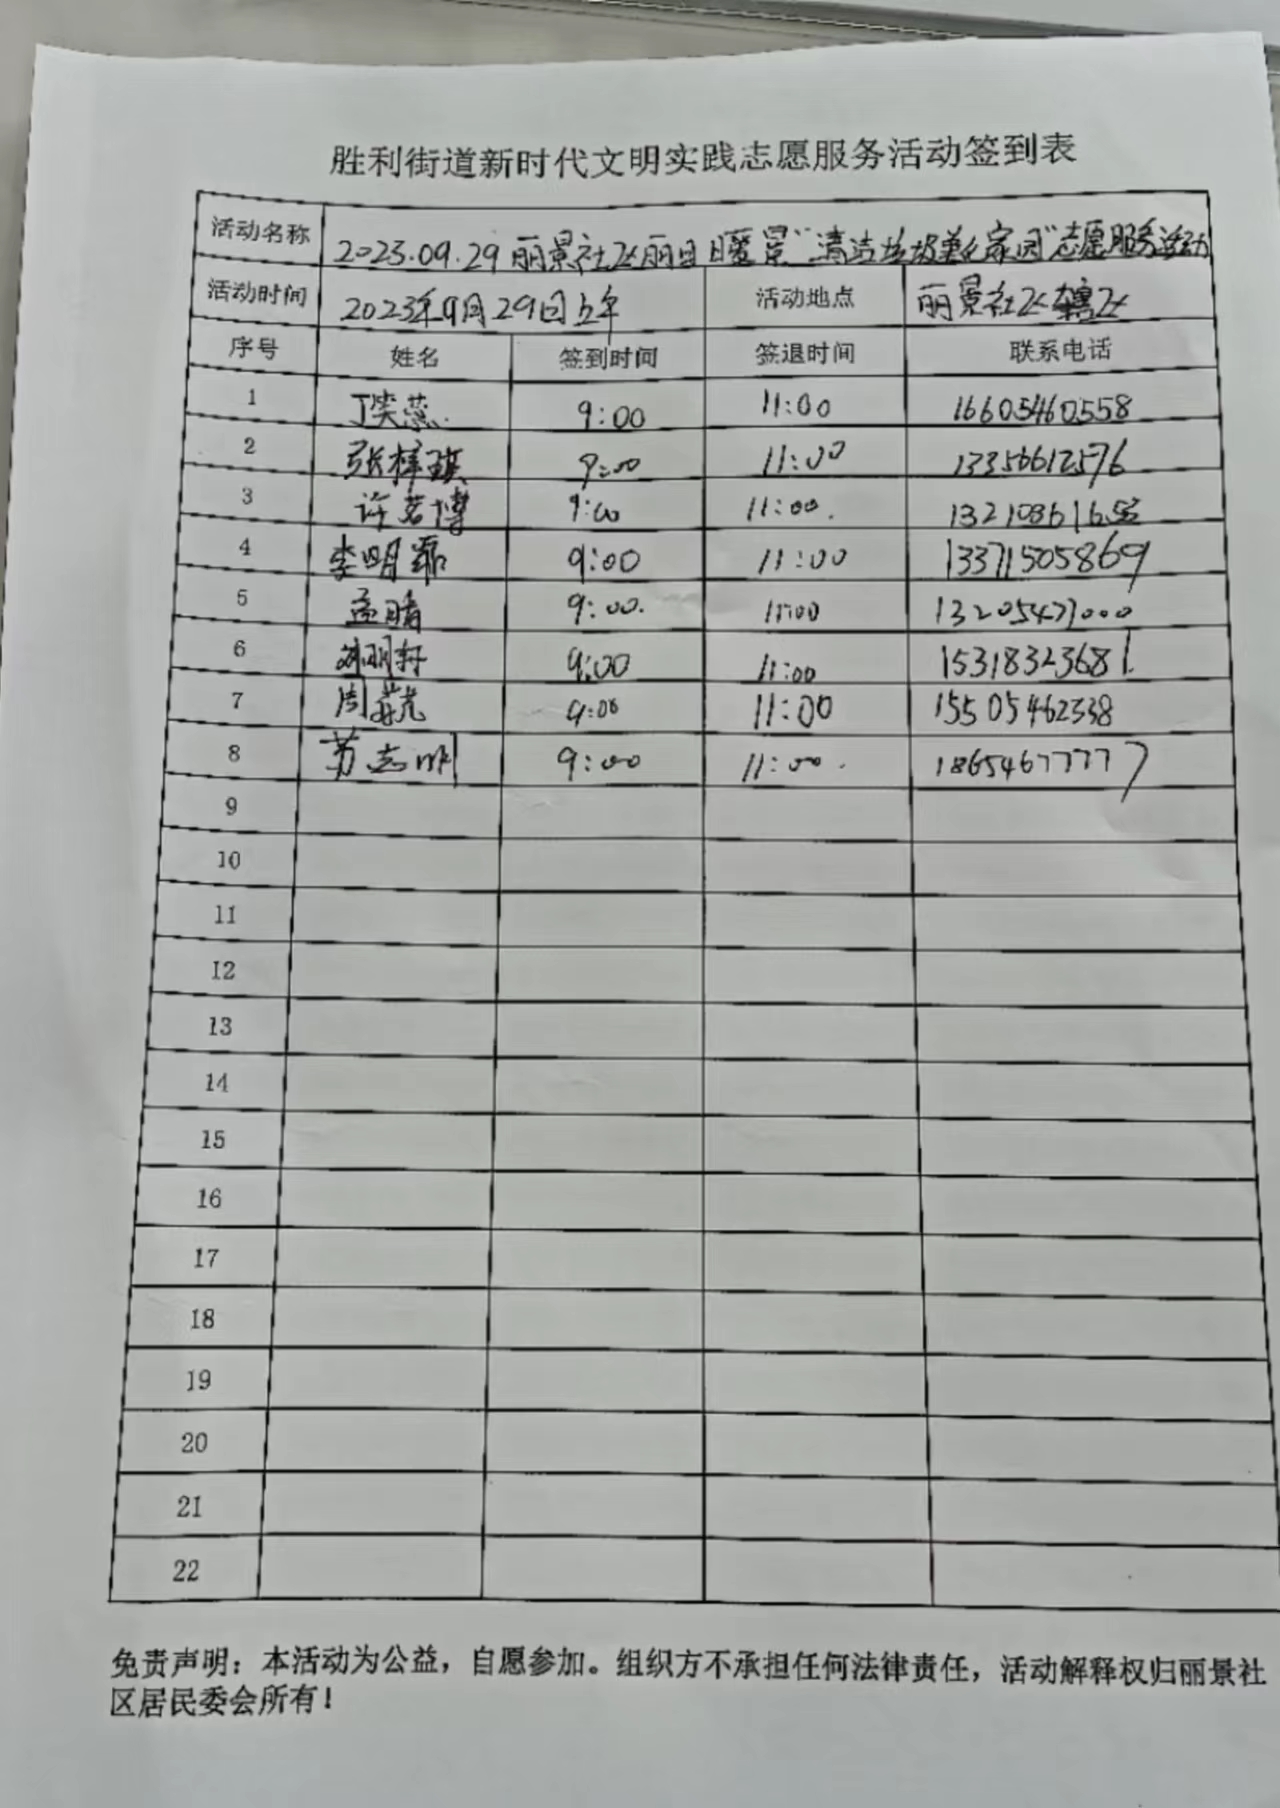 胜利街道新时代文明实践志愿服务活动签到表
活动名称 2023.09.29丽景社区丽日暖景"清洁垃圾美化家园"志愿服务活动
活动时间 2023年9月29日上午 活动地点 丽景社区辖区
序号 姓名 签到时间 签退时间 联系电话
1 丁笑蕊 9:00 11:00 16605460558
2 张梓琪 9:00 11:00 13356612576
3 许若博 9:00 11:00.
4 李明磊 9:00 11:00 13371505869
5 孟晴 9:00. 11:00 13205471000
6 刘明轩 9:00 11:00 15318323681
7 周 9:00 11:00 15505462338
8 苏志明 9:00 11:00. 18654677777
9
10
11
12
13
14
15
16
17
18
19
20
21
22
免责声明：本活动为公益，自愿参加。组织方不承担任何法律责任，活动解释权归丽景社
区居民委会所有！